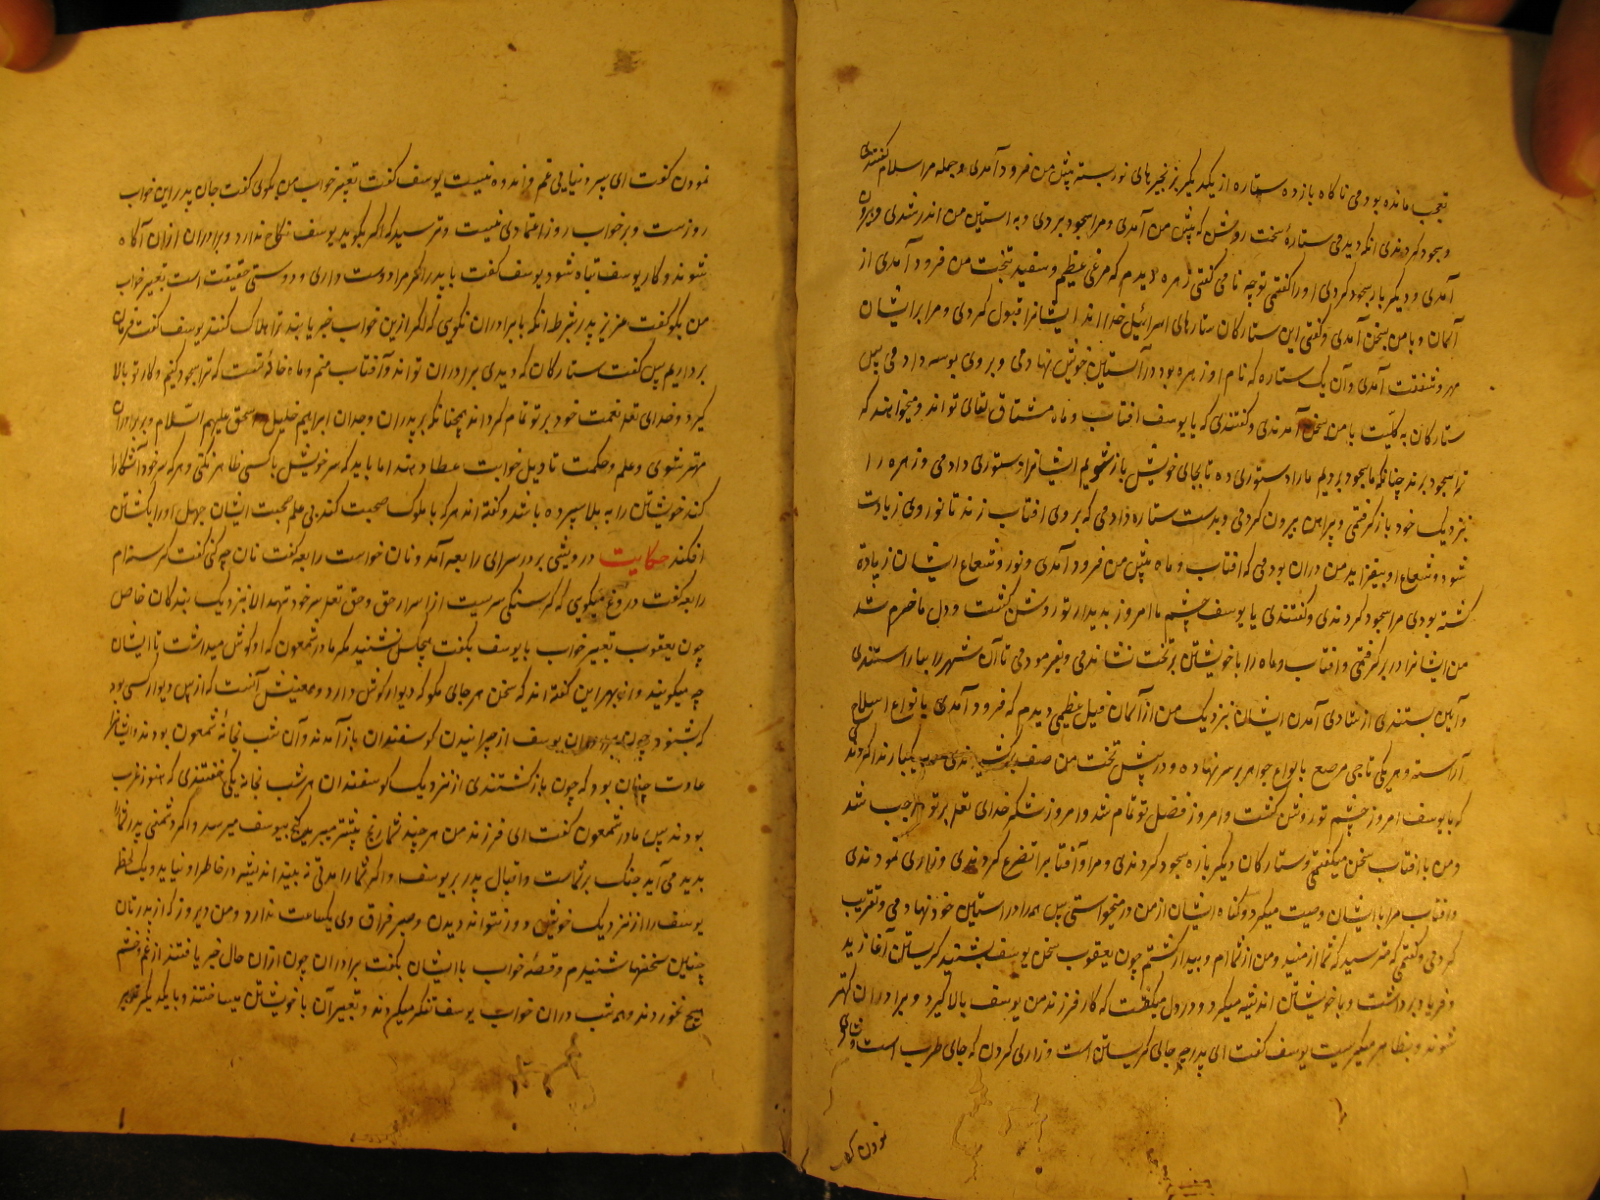 تعجب مانده بودمی ناگاه یازده ستاره از یکدیگر بزنجیرهای نور بسته پیش من فرود آمدی و جمله مرا سلام گفتندی
و سجود کردندی آنکه دیدمی ستاره سخت روشن که پیش من آمدی و مرا سجود بردی و به آستین من اندر شدی و بیرون
آمدی و دیگر بار سجود کردی او را گفتمی تو چه نامی گفتی زهره دیدم که مرغی عظیم و سفید بتخت من فرود آمدی از
آسمان و با من سخن آمدی و گفتی این ستارگان ستارهای اسرائیل خدا اند ایشانرا قبول کردی و مرا بر ایشان
مهر و شفقت آمدی و آن یک ستاره که نام او زهره بود در آستین خویش نهادمی و بر وی بوسه دادمی پس
ستارگان به کلیت با من سخن آمدندی و گفتندی که یا یوسف آفتاب و ماه مشتاق لقای تو اند و میخواهند که
ترا سجود برند چنانکه ما سجود بردیم ما را دستوری ده تا بجای خویش باز شویم ایشانرا دستوری دادمی و زهره را
نزدیک خود باز گرفتمی و پیراهن بیرون کردمی و بدست ستاره دادمی که بر وی آفتاب زند تا نور وی زیادت
شود و شعاع او بیفزاید من دران بودمی که آفتاب و ماه پیش من فرود آمدی و نور و شعاع ایشان زیاده
گشته بودی مرا سجود کردندی و گفتندی یا یوسف چشم ما امروز بدیدار تو روشن گشت و دل ما خرم شد
من ایشانرا در بر گرفتمی و آفتاب و ماه را با خویشتن بر تخت نشاندمی و بفرمودمی تا آن شهر را بیاراستندی
و آیین بستندی از شادی آمدن ایشان نزدیک من از آسمان فیل عظیمی دیدم که فرود آمدی با نواع اسلام
آراسته و هر یکی تاجی مرصع بانواع جواهر بر سر نهاده و در پیش تخت من صف کشیدندی یکبار ندا کردندی
که یا یوسف امروز چشم تو روشن گشت و امروز فضل تو تمام شد و امروز شکر خدای تعلی بر تو واجب شد
و من با آفتاب سخن میگفتمی و ستارگان دیگر باره سجود کردندی و مرا و آفتابرا تضرع کردندی و زاری نمودندی
و آفتاب مرا با ایشان وصیت میکرد و گناه ایشان از من در میخواستی پس همه را در آستین خود نهادمی و تقریب
کردمی و گفتمی که مترسید که شما از منید و من از شما ام و بیدار گشتم چون یعقوب سخن یوسف بشنید گریستن آغازید
و فریاد برداشت و با خویشتن اندیشه میکرد و در دل میگفت که کار فرزند من یوسف بالا گیرد و برادران کهتر
شوند و بظاهر میگریست یوسف گفت ای پدر چه جای گریستن است و زاری کردن که جای طرب است و شادی
نمودن گفت
نمودن گفت ای پسر دنیا بی غم و اندوه نیست یوسف گفت تعبیر خواب من بگوی گفت جان پدر این خواب
روزست و بر خواب روز اعتمادی نیست و ترسید که اگر بگوید یوسف نگاه ندارد و برادران ازان آگاه
شوند و کار یوسف تباه شود یوسف گفت یا پدر اگر مرا دوست داری و دوستی حقیقت است تعبیر خواب
من بگو گفت عزیز پدر بشرط آنکه با برادران نگوی که اگر ازین خواب خبر یابند ترا هلاک کنند یوسف گفت فرمان
برداریم پس گفت ستارگان که دیدی برادران تو اند و آفتاب منم و ماه خالهٔ تست که ترا سجود کنیم و کار تو بالا
گیرد و خدای تعلی نعمت خود بر تو تمام گرداند همچنانکه بر پدران و جدان ابراهیم خلیل و اسحق علیهم السلام و بر برادران
مهتر شوی و علم و حکمت تاویل خوابت عطا دهد اما باید که سر خویش با کسی ظاهر نکنی و هر که سر خود آشکارا
کند خویشتن را به بلا سپرده باشد و گفته اند هر که با ملوک صحبت کند بی علم صحبت ایشان جهل او را بکشتن
افکند حکایت درویشی بر در سرای رابعه آمد و نان خواست رابعه گفت نان چه کنی گفت گرسنه ام
رابعه گفت دروغ میگویی که گرسنگی سریست از اسرار حق و حق تعلی سر خود ننهد الا بنزدیک بندگان خاص
چون یعقوب تعبیر خواب با یوسف بگفت هیچکس نشنید مگر مادر شمعون که او گوش میداشت تا ایشان
چه میگویند و از بهر این گفته اند که سخن هر جای مگو که دیوار گوش دارد و معنیش آنست که از پس دیوار کسی بود
که بشنود چون برادران یوسف از چرانیدن گوسفندان باز آمدند و آن شب بخانهٔ شمعون بودند و ایشانرا
عادت چنان بود که چون باز گشتندی از نزدیک گوسفندان هر شب بخانهٔ یکی خفتندی که هنوز عزب
بودند پس مادر شمعون گفت ای فرزند من هر چند شما رنج بیشتر میبرید گنج بیوسف میرسد و اگر دشمنی پدر شما را
پدید می آید جنگ بر شماست و اقبال پدر بر یوسف و اگر شما را مدتی نه بیند اندیشه در خاطر او نیاید و یک لحظه
یوسف را از نزدیک خویش دور نتواند دیدن و صبر فراق وی یکساعت ندارد و من دیروز که از پدرتان
چنین سخنها شنیدم و قصهٔ خواب با ایشان بگفت برادران چون ازان حال خبر یافتند از غم و خشم
هیچ نخوردند و همه شب دران خواب یوسف تفکر میکردند و تعبیر آن با خویشتن میساختند و با یکدیگر تدبیر